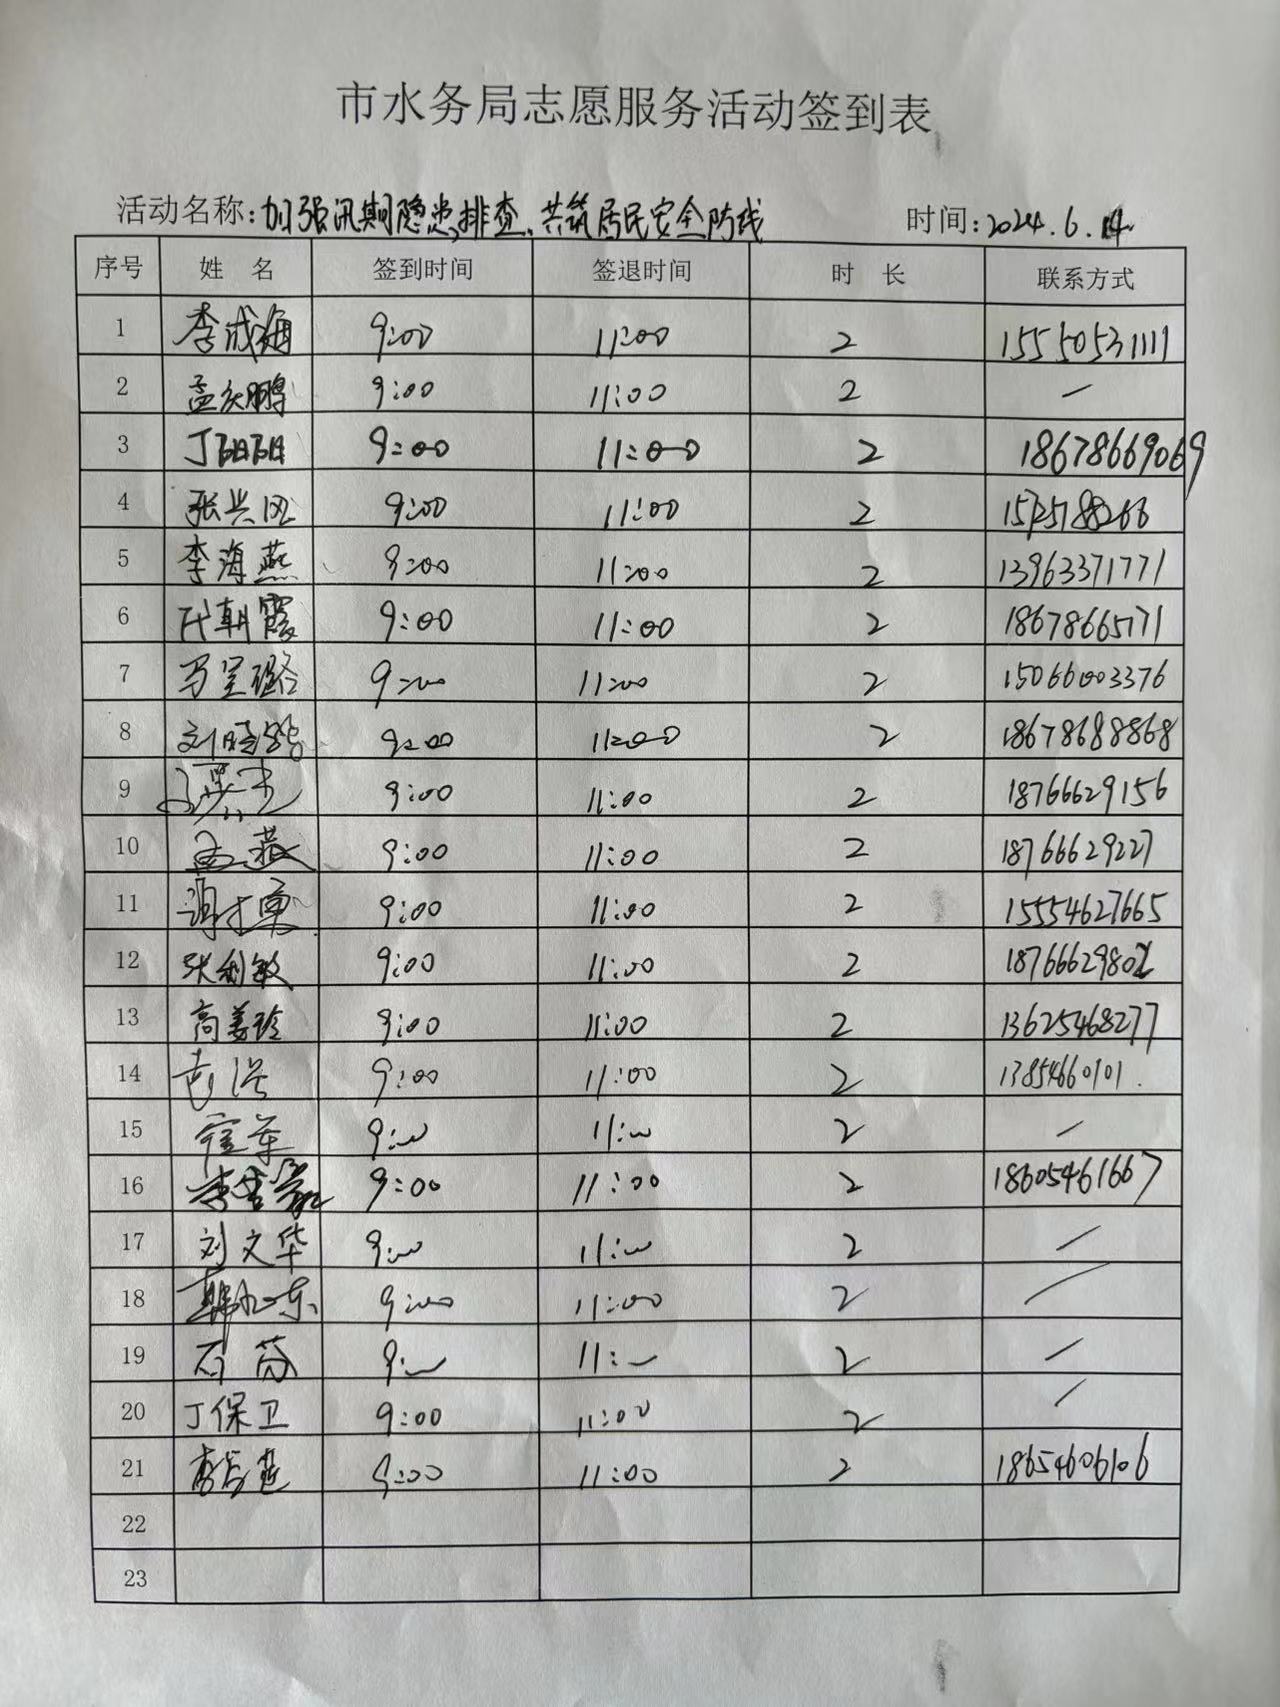 市水务局志愿服务活动签到表
活动名称:加强汛期隐患排查、共筑居民安全防线 时间:2024.6.14
序号 姓名 签到时间 签退时间 时长 联系方式
1 李成海 9:00 11:00 2 15550531111
2 孟庆鹏 9:00 11:00 2 —
3 丁阳阳 9:00 11:00 2 18678669069
4 张兴 9:00 11:00 2
5 李海燕 9:00 11:00 2 13963371771
6 代朝霞 9:00 11:00 2 18678665171
7 9:00 11:00 2 15066003376
8 刘晓 9:00 11:00 2 18678688868
9 9:00 11:00 2 18766629156
10 孟燕 9:00 11:00 2 18766629227
11 9:00 11:00 2 15554627665
12 张利敏 9:00 11:00 2 18766629802
13 高姜玲 9:00 11:00 2 13625468277
14 9:00 11:00 2 13854660101
15 9:00 11:00 2 —
16 李 9:00 11:00 2 18605461667
17 刘文华 9:00 11:00 2 —
18 韩 东 9:00 11:00 2 —
19 石芬 9:00 11:00 2 —
20 丁保卫 9:00 11:00 2 —
21 9:00 11:00 2 18654606106
22
23